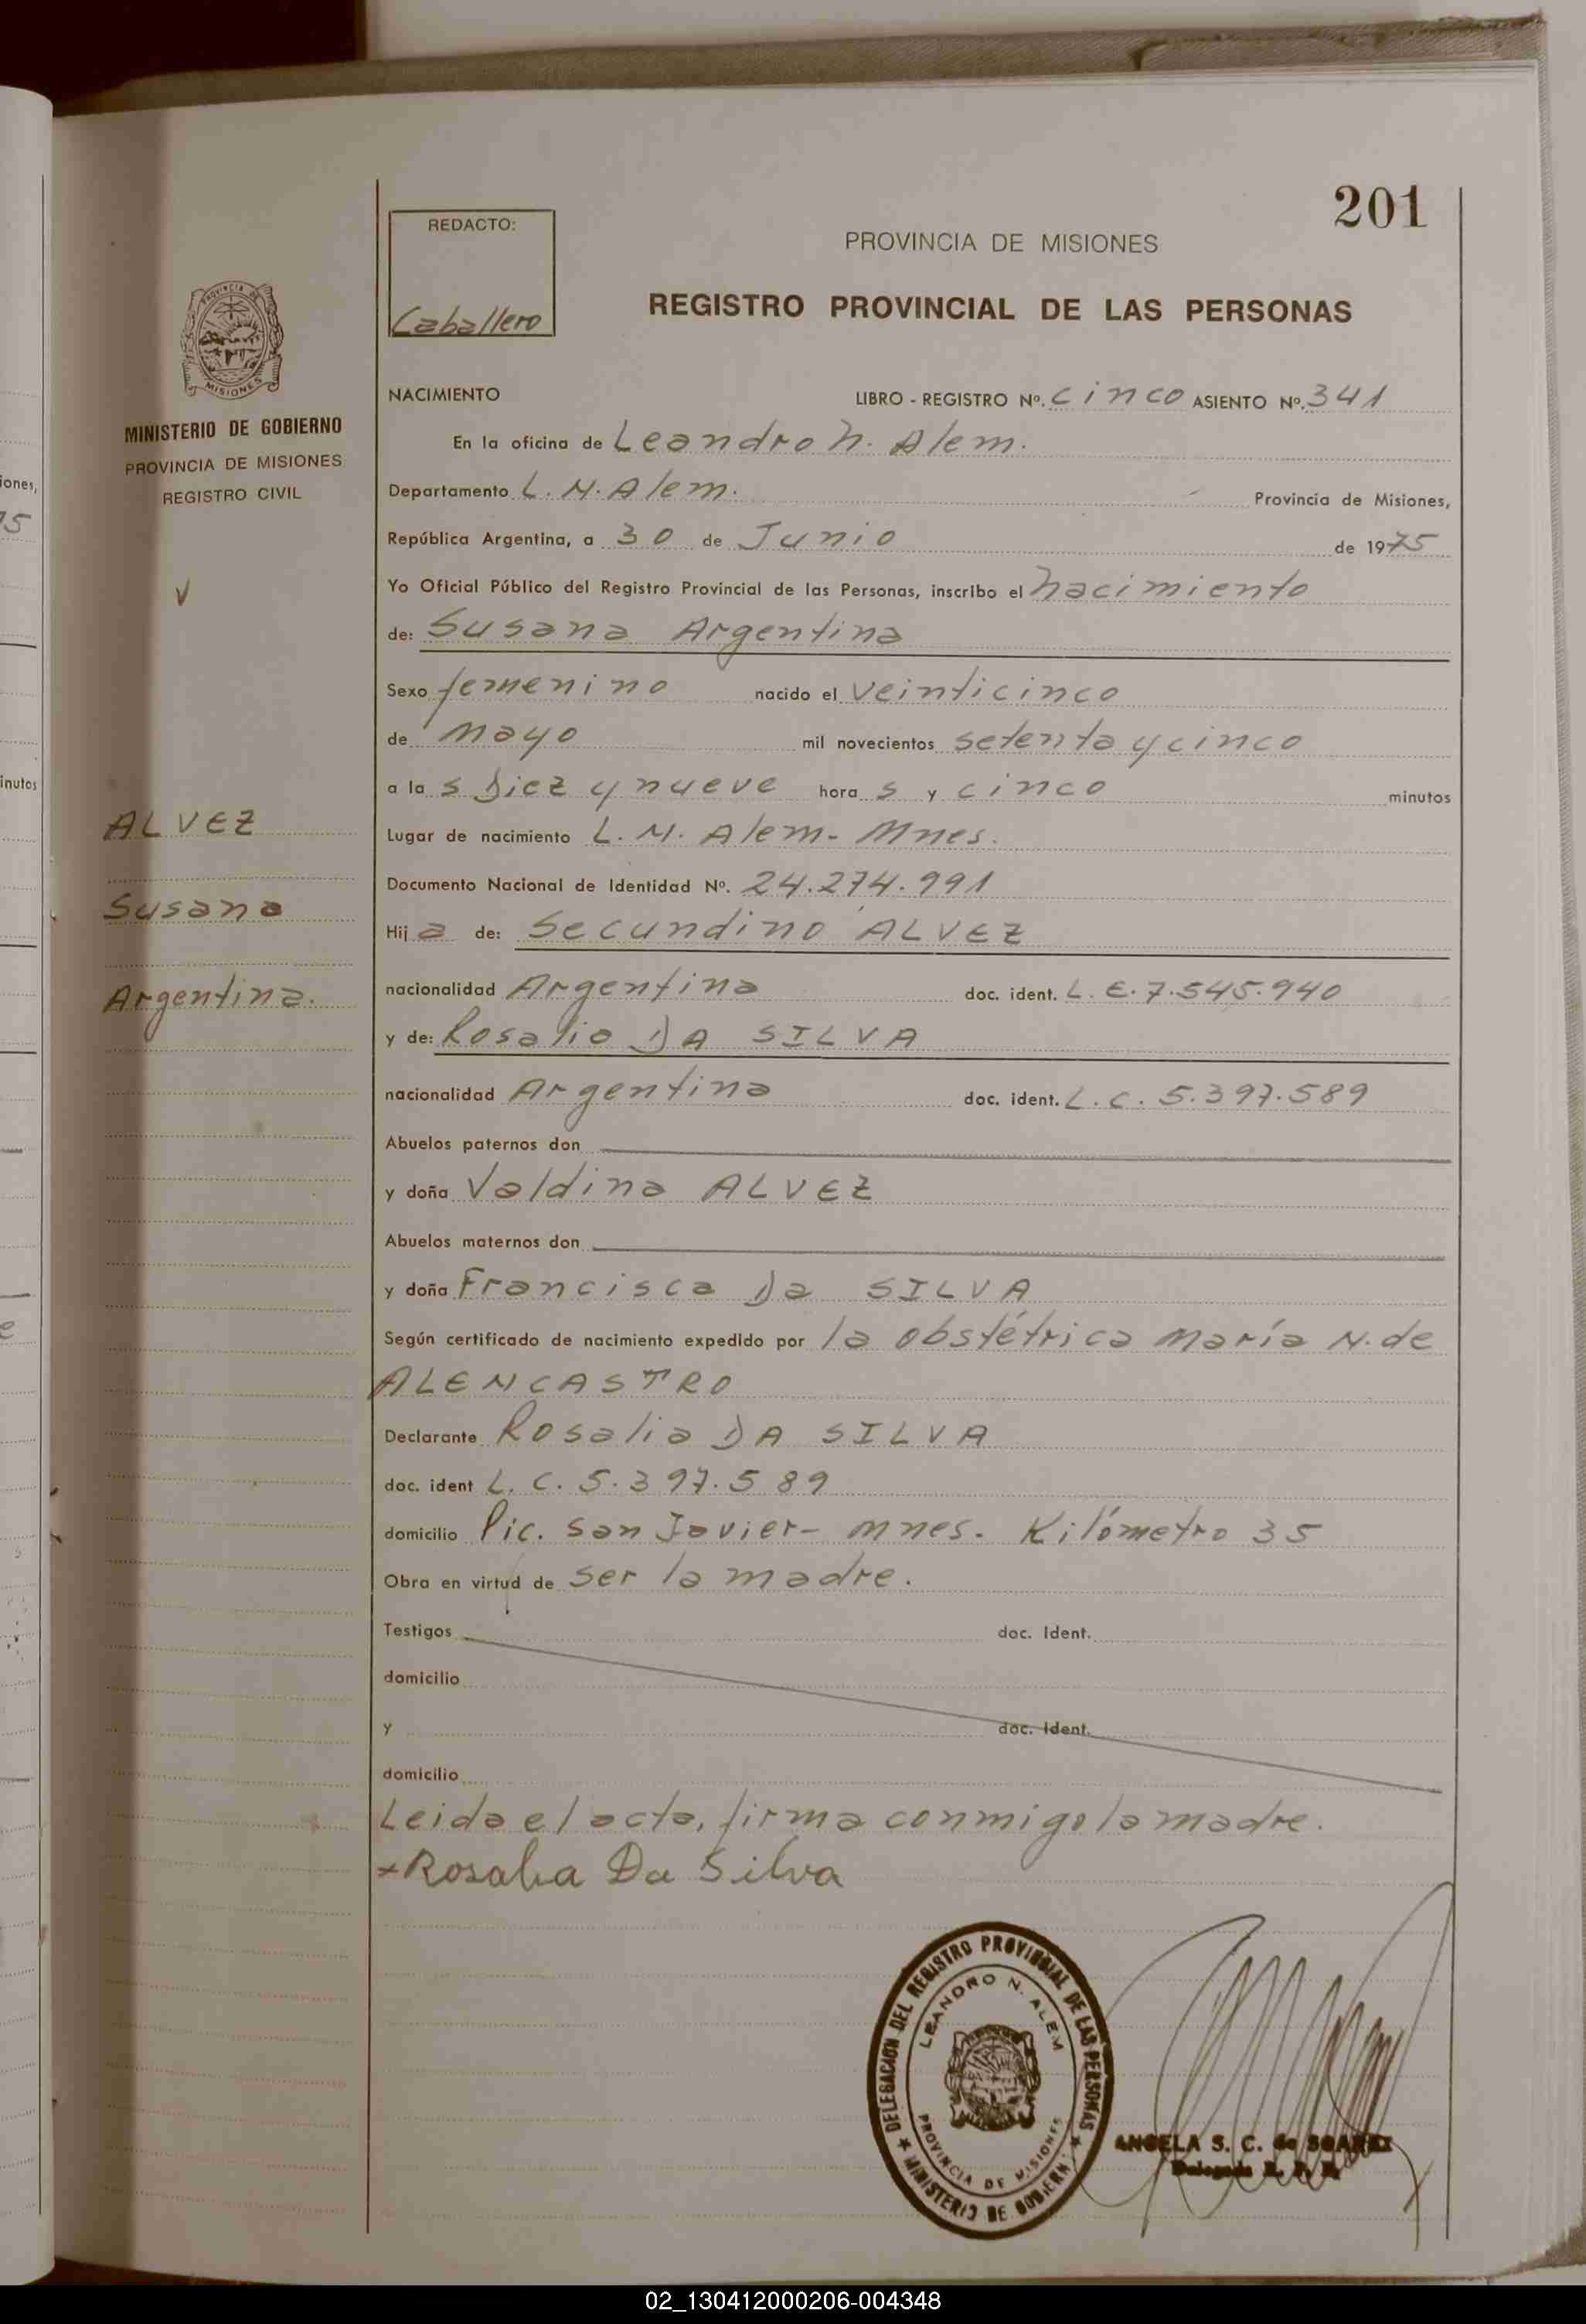 201
REDACTO:
Caballero
PROVINCIA DE MISIONES
REGISTRO PROVINCIAL DE LAS PERSONAS
PROVINCIA DE
MISIONES
MINISTERIO DE GOBIERNO
PROVINCIA DE MISIONES
REGISTRO CIVIL
ALVEZ
Susana
Argentina.
NACIMIENTO LIBRO - REGISTRO Nº. cinco ASIENTO Nº. 341
En la oficina de Leandro N. Alem.
Departamento L. N. Alem. Provincia de Misiones,
República Argentina, a 30 de Junio de 1975
Yo Oficial Público del Registro Provincial de las Personas, inscribo el nacimiento
de: Susana Argentina
Sexo femenino nacido el veinticinco
de mayo mil novecientos setenta y cinco
a la s Diez y nueve hora s y cinco minutos
Lugar de nacimiento L. N. Alem - Mnes.
Documento Nacional de Identidad Nº. 24.274.991
Hij a de: Secundino ALVEZ
nacionalidad Argentina doc. ident. L. E. 7.545.940
y de: Rosalia DA SILVA
nacionalidad Argentina doc. ident. L. C. 5.397.589
Abuelos paternos don
y doña Valdina ALVEZ
Abuelos maternos don
y doña Francisca Da SILVA
Según certificado de nacimiento expedido por la obstétrica María N. de
ALENCASTRO
Declarante Rosalia DA SILVA
doc. ident L. C. 5.397.589
domicilio Pic. San Javier - Mnes. Kilómetro 35
Obra en virtud de ser la madre.
Testigos doc. Ident.
domicilio
y doc. Ident.
domicilio
Leida el acta, firma conmigo la madre.
Rosalia Da Silva
DELEGACION DEL REGISTRO PROVINCIAL DE LAS PERSONAS
LEANDRO N. ALEM
PROVINCIA DE MISIONES
MINISTERIO DE GOBIERN
ANGELA S. C. de
iones,
75
inutos
e
02_130412000206-004348